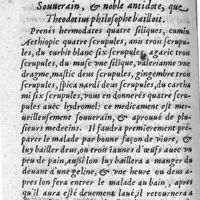 Souuerain, & noble antidote, que
Theodorius philosophe bailloit.
Prenés hermodates quatre siliques, cumin
Aethiopic quatre scrupules, anis trois scrupu-
les, du turbit blanc six scrupules, agaric trois
scrupules, du musc vne silique, valerianne vne
dragme, mastic deus scrupules, gingembre trois
scrupules, spica nardi deus scrupules, du carda-
mi six scrupules, vous en donnerés quatre scru-
pules auec hydromel: ce medicament est mer-
ueilleusement souuerain, & aprouué de plu-
sieurs medecins. Il faudra premierement prépa-
rer le malade par bonne façon de viure, &
luy bailler deus, ou trois iaunes d'œufs auec vn
peu de pain, aussi lon luy baillera a manger du
deuant d'vne geline, & vne heure ou deus a-
pres lon fera entrer le malade au bain, apres
qu'il aura esté deuement laué, il retournera a